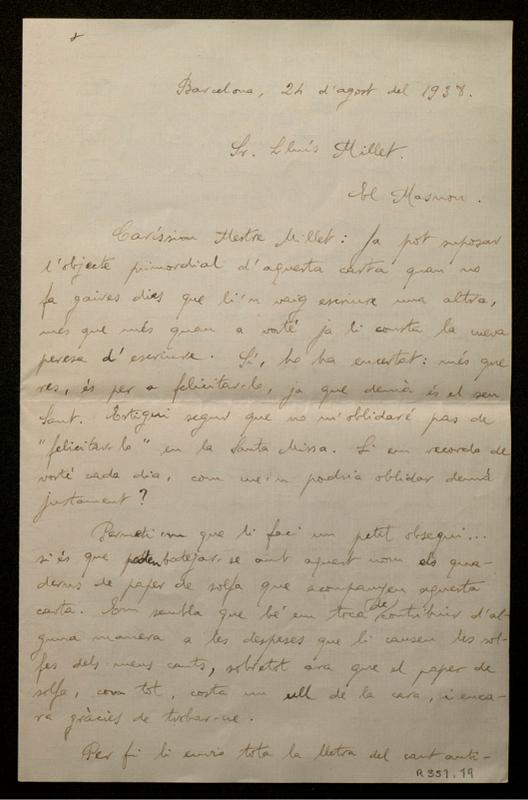 Barcelona, 24 d'agost del 1938.
Sr. Lluís Millet.
El Masnou.
Caríssim Mestre Millet: Ja pot suposar
l'objecte primordial d'aquesta carta quan no
fa gaires dies que li'n vaig escriure una altra,
més que més quan a vostè ja li consta la meva
peresa d'escriure. Sí, ho ha encertat: més que
res, és per a felicitar-lo, ja que demà és el seu
Sant. Estigui segur que no m'oblidaré pas de
"felicitar-lo" en la Santa Missa. Si em recordo de
vostè cada dia, com me'n podria oblidar demà
justament?
Permeti'm que li faci un petit obsequi...
si és que poden batejar-se amb aquest nom els qua-
derns de paper de solfa que acompanyen aquesta
carta. Em sembla que bé em toca de contribuir d'al-
guna manera a les despeses que li causen les sol-
fes dels meus cants, sobretot ara que el paper de
solfa, com tot, costa un ull de la cara, i enca-
ra gràcies de trobar-ne.
Per fi li envio tota la lletra del cant anti-
R 351.19